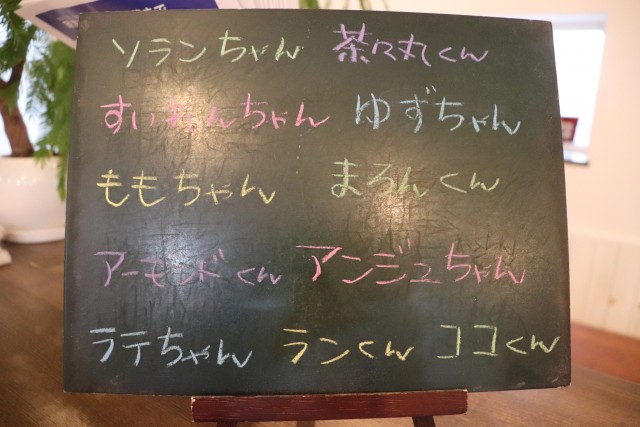 ソランちゃん 茶々丸くん
すいれんちゃん ゆずちゃん
ももちゃん まろんくん
アーモンドくん アンジュちゃん
ラテちゃん ランくん ココくん